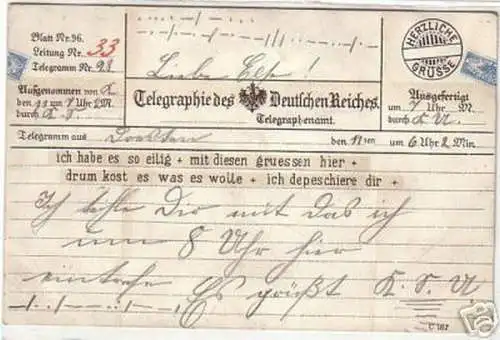 Blatt Nr. 96.
Leitung Nr. 33
Telegramm Nr. 98
HERZLICHE GRÜSSE
Liebe Else!
Aufgenommen von K.
den 11 um 7 Uhr M.
durch K. F.
Telegraphie des Deutschen Reiches.
Telegraphenamt.
Ausgefertigt
um 7 Uhr M.
durch K. U.
Telegramm aus
den 11ten um 6 Uhr 2 Min.
ich habe es so eilig + mit diesen gruessen hier +
drum kost es was es wolle + ich depeschiere dir +
Ich theile Dir mit das ich
um 8 Uhr hier
eintrefe Es grüßt K. F. U.
C 187